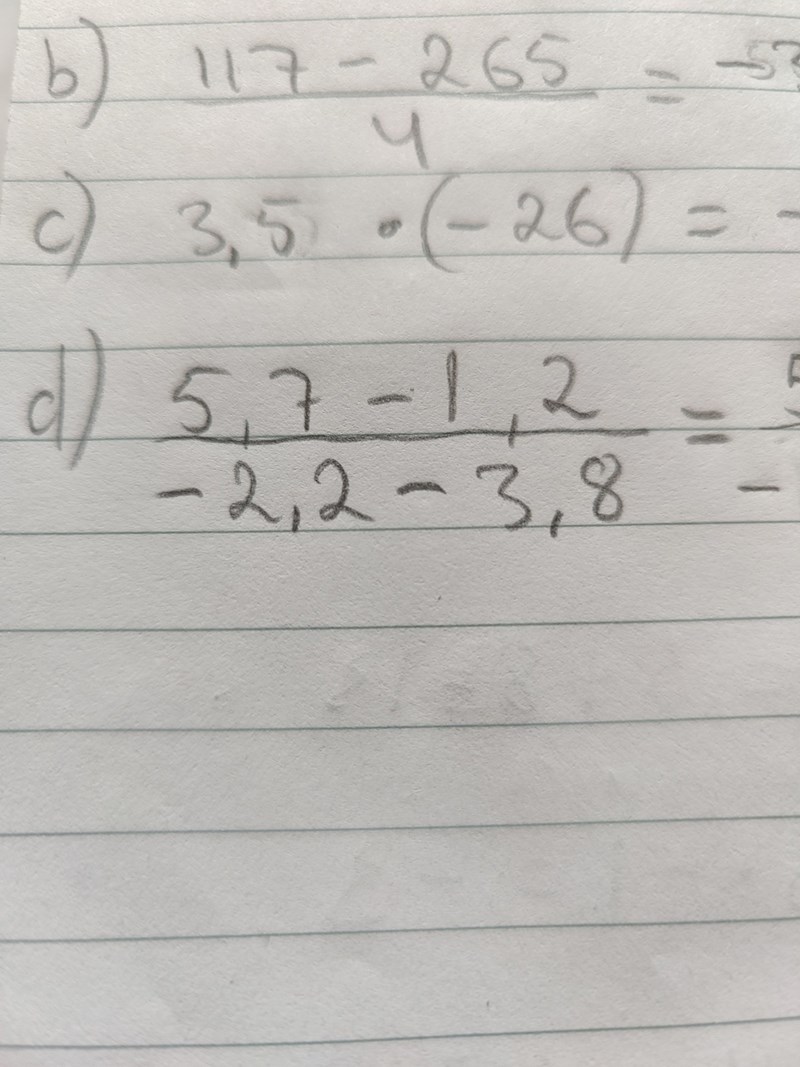 b) 117 - 265
= -53
4
c) 3,5 · (-26) = -
d) 5,7 - 1,2
=
-2,2 - 3,8 -